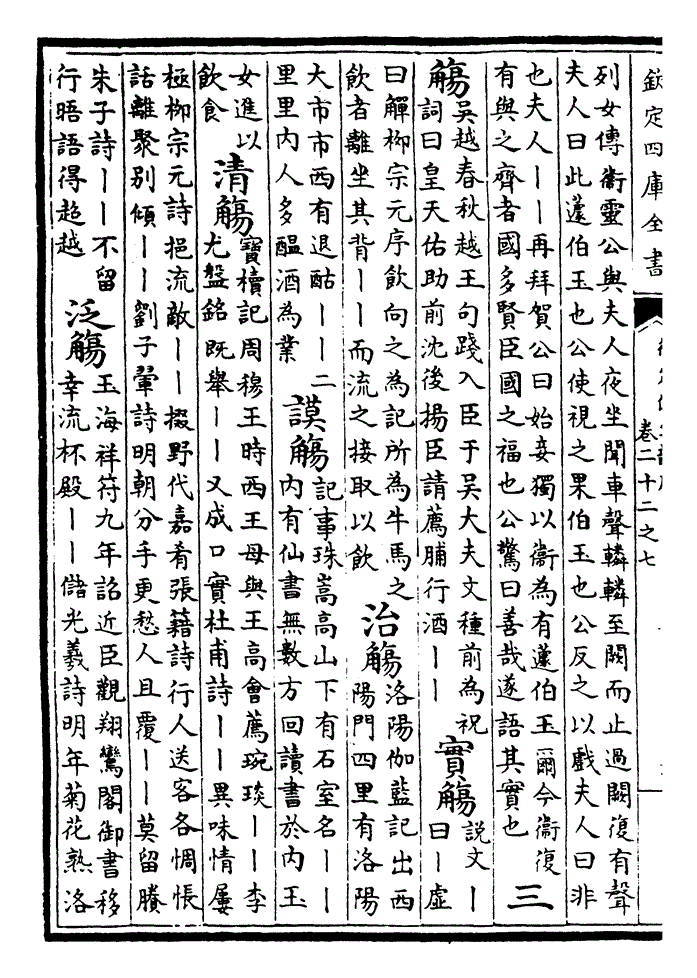 欽定四庫全書
卷二十二之七
列女傳衛靈公與夫人夜坐聞車聲轔轔至闕而止過闕復有聲
夫人曰此蘧伯玉也公使視之果伯玉也公反之以戲夫人曰非
也夫人丨丨再拜賀公曰始妾獨以衛為有蘧伯玉爾今衛復
有與之齊者國多賢臣國之福也公驚曰善哉遂語其實也
三
觴
吳越春秋越王句踐入臣于吳大夫文種前為祝
詞曰皇天佑助前沈後揚臣請薦脯行酒丨丨
實觴
説文丨
曰丨虛
曰觶柳宗元序飲向之為記所為牛馬之
飲者離坐其背丨丨而流之接取以飲
治觴
洛陽伽藍記出西
陽門四里有洛陽
大市市西有退酤丨丨二
里里內人多醖酒為業
謨觴
記事珠嵩高山下有石室名丨丨
內有仙書無數方回讀書於內玉
女進以
飲食
清觴
寶櫝記周穆王時西王母與王高會薦琬琰丨丨李
尤盤銘既舉丨丨又成口實杜甫詩丨丨異味情屢
極柳宗元詩挹流敵丨丨掇野代嘉肴張籍詩行人送客各惆悵
話離聚別傾丨丨劉子翬詩明朝分手更愁人且覆丨丨莫留賸
朱子詩丨丨不留
行晤語得超越
泛觴
玉海祥符九年詔近臣觀翔鸞閣御書移
幸流杯殿丨丨儲光羲詩明年菊花熟洛